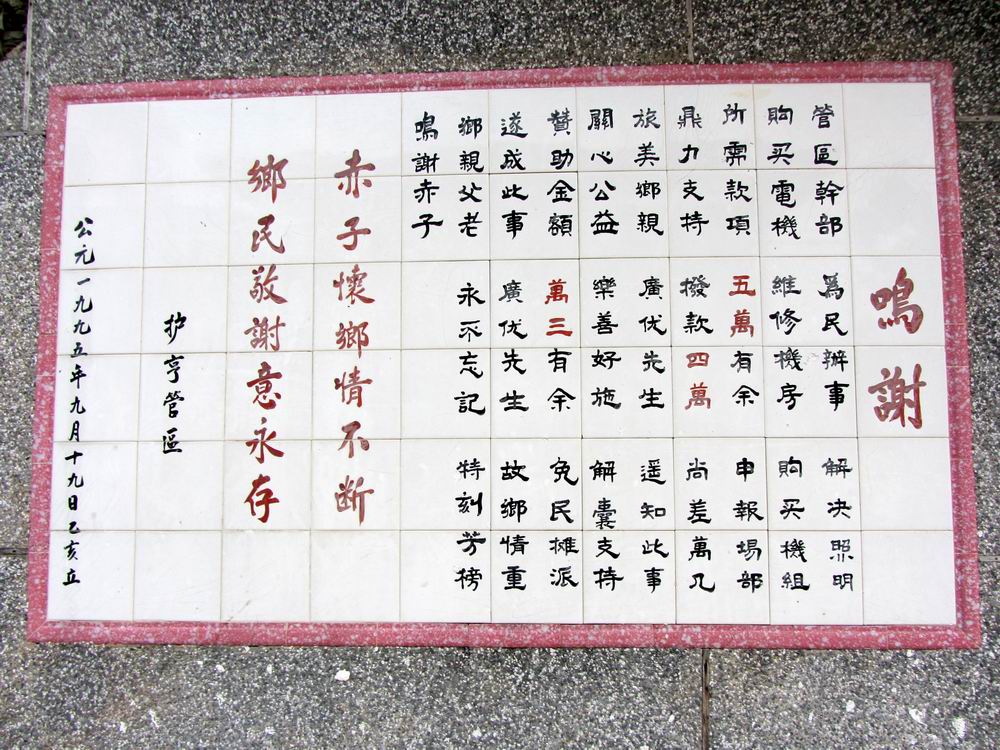 鳴謝
管區幹部 爲民辦事 解决照明
购买電機 維修機房 购买機組
所需款項 五萬有余 申報場部
鼎力支持 撥款四萬 尚差萬几
旅美鄉親 廣伏先生 遥知此事
關心公益 樂善好施 解囊支持
贊助金額 萬三有余 免民摊派
遂成此事 廣伏先生 故鄉情重
鄉親父老 永不忘記 特刻芳榜
鳴謝赤子
赤子懷鄉情不断
鄉民敬謝意永存
护亨管區
公元一九九五年九月十九日乙亥立